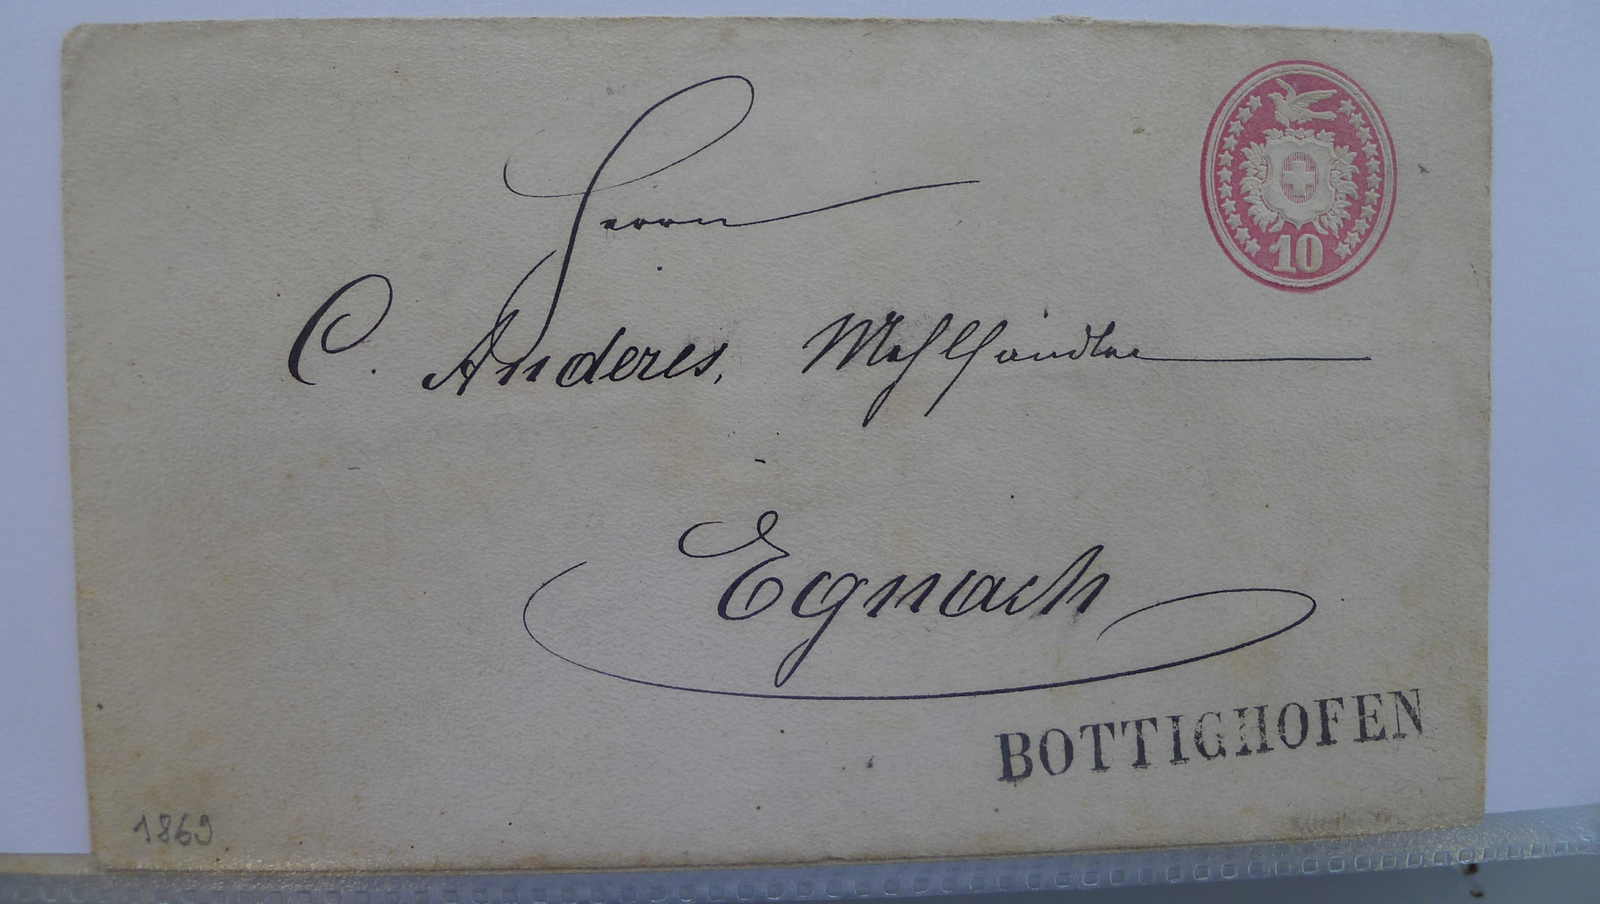 10
Herrn
C. Anderes, Mehlhändler
Egnach
BOTTIGHOFEN
1869